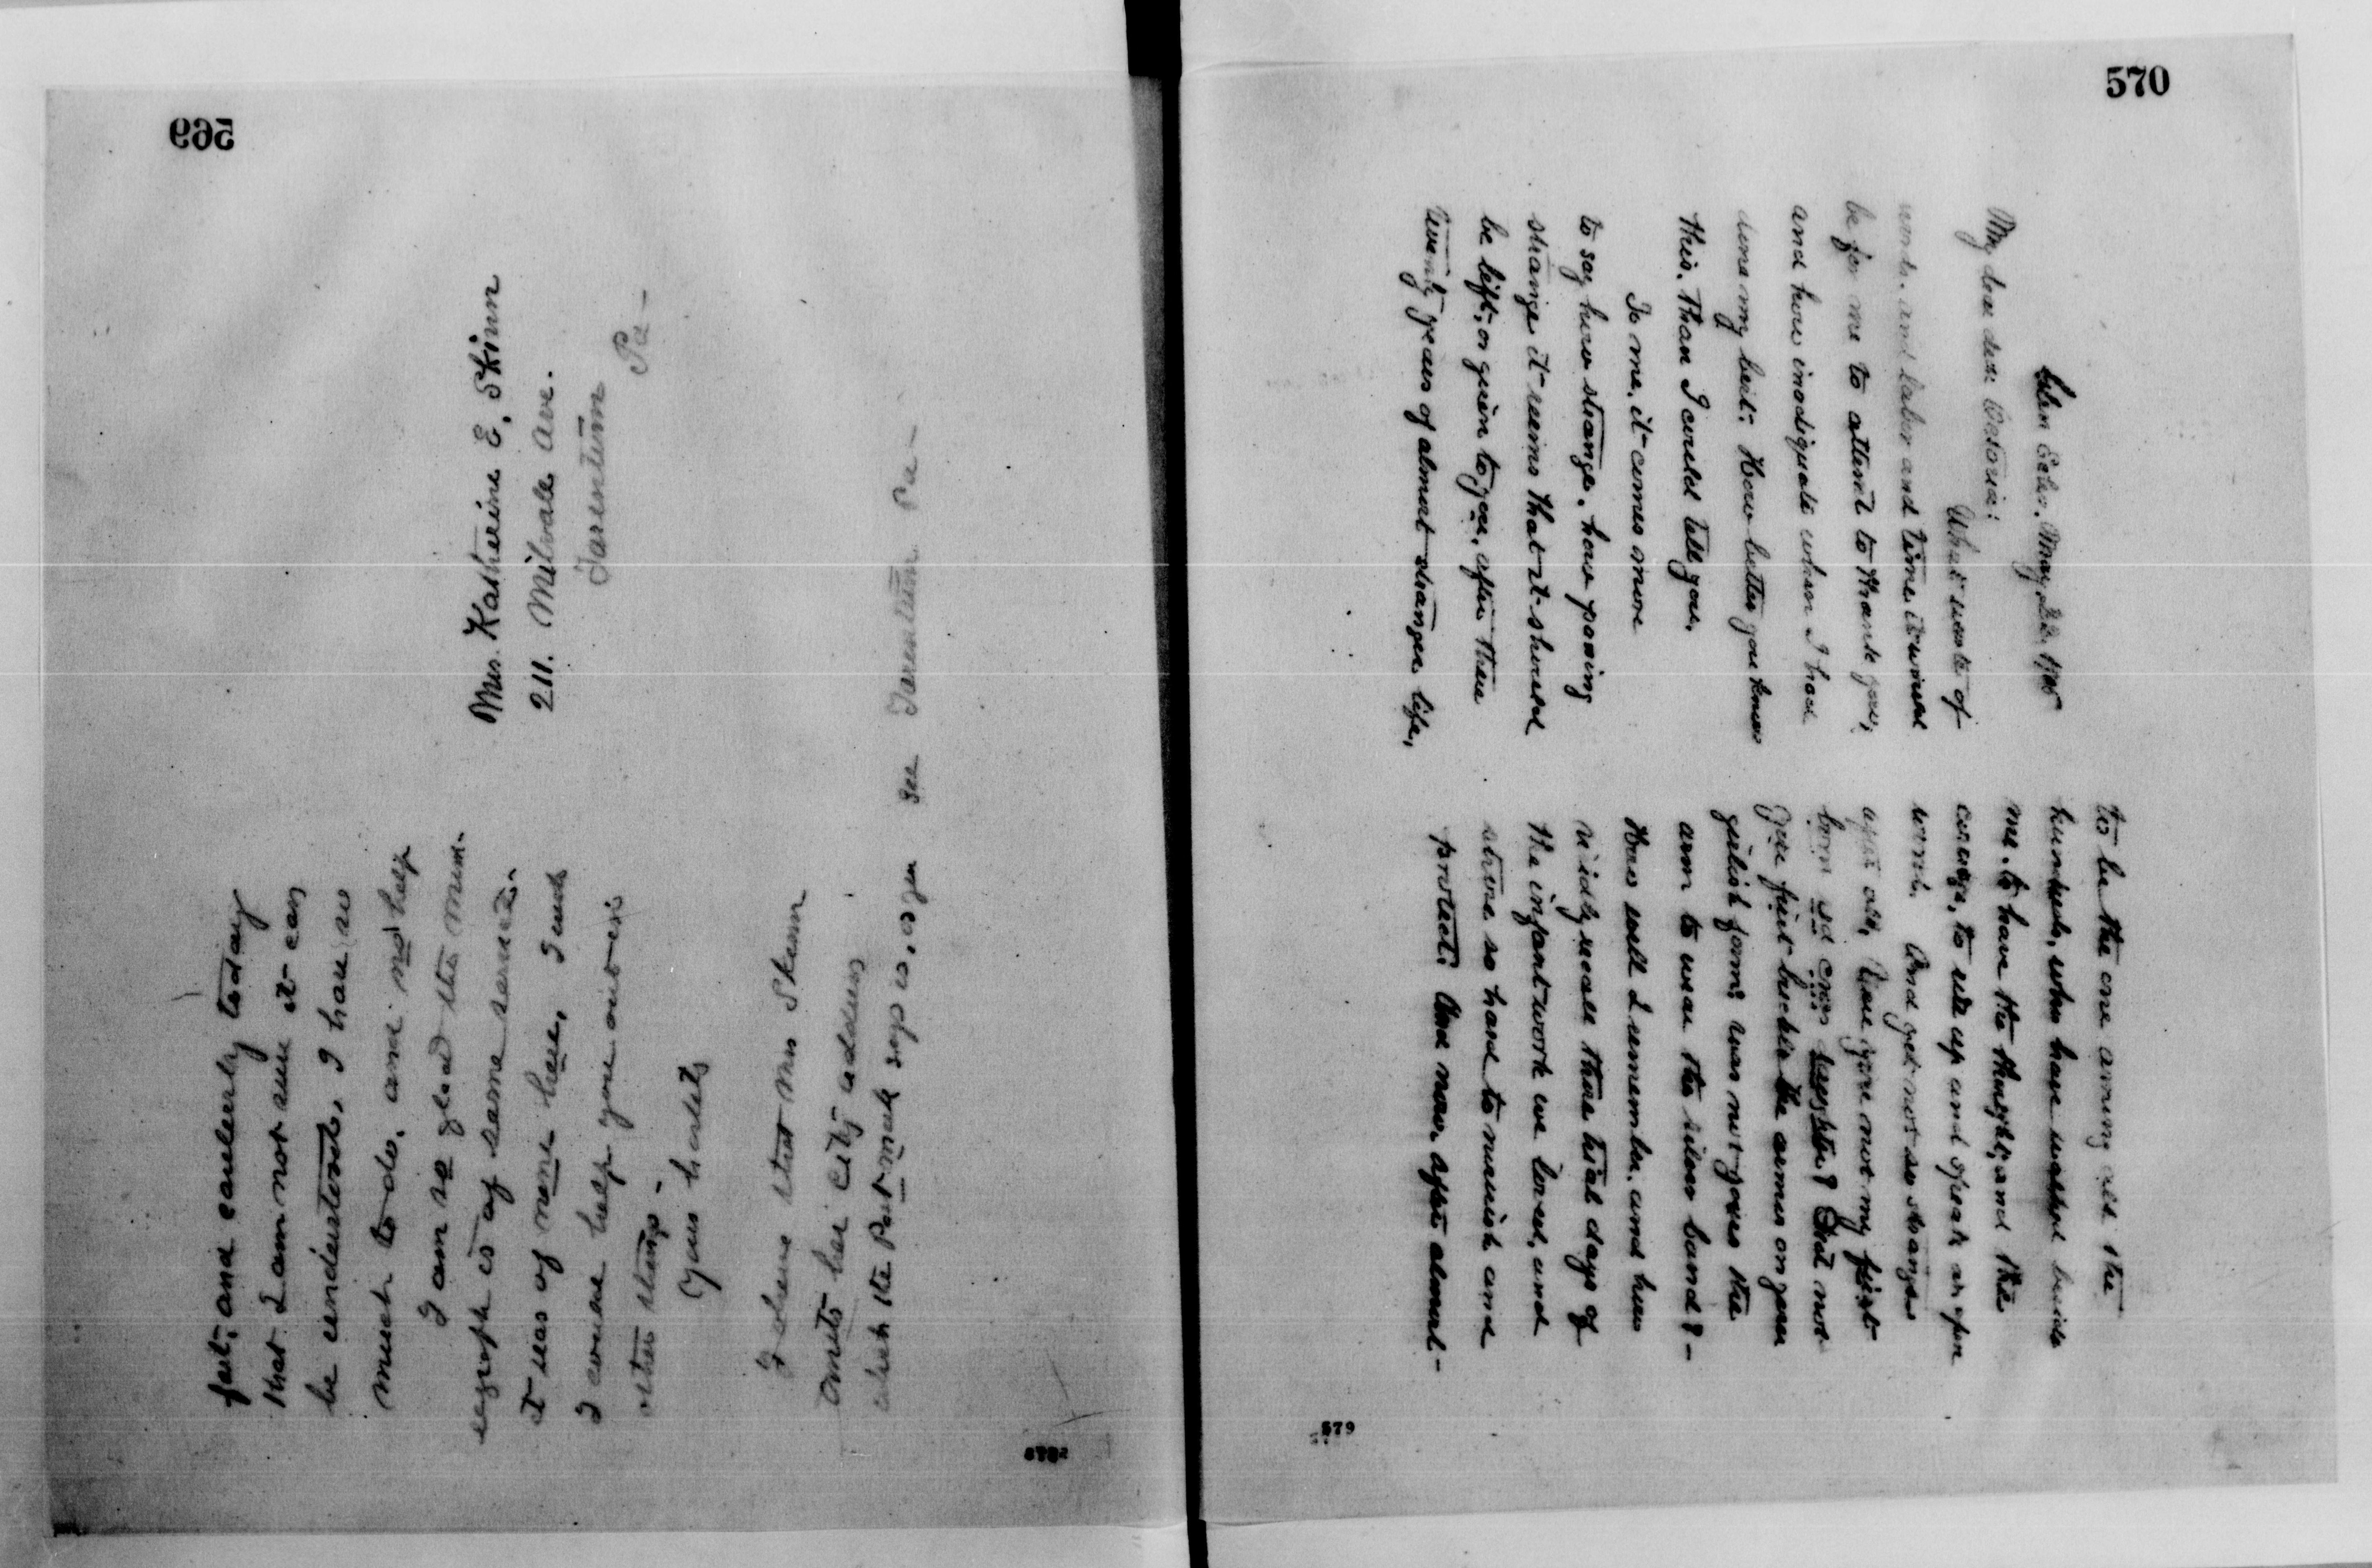 569
fast, and carelessly today
that I am not sure it can
be understood, I have so
much to do, and no help
I am so glad the
is of some service.
it was of none here, I wish
I could help you out in
other things.
Yours hastily
I believe that Mrs Skinn
omits her city address
which the Post mark says is, as you see Tarentum Pa -
Mrs. Katherine E. Skinn
211. Milvale Ave.
Tarentum
Pa -
570
Glen Echo. May 22. 1905
My dear dear
What waste of
words, and labor and time it would
be for me to attempt to thank you,
and how inadequate when I had
done my best. How better you know
this. Than I could tell you.
To me, it comes more
to say how strange, how passing
strange it seems that it should
be left, or given to you, after these
twenty years of almost stranger life,
to be the one among all the
hundreds, who have worked beside
me. to have the thought, and the
courage, to rise up and speak an open
word. And yet not so strange
after all, Were you not my first
born red cross daughter? Did not
you first buckle the armor on your
girlish form, was not yours the
arm to wear the silver band? -
How well I remember, and how
vividly recall those trial days of
the infant work we loved, and
strove so hard to nourish and
protect. And now, after almost -
579